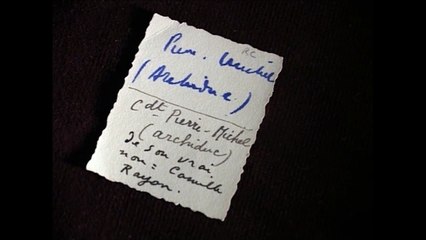 RC
Pierre. Michel
(Archiduc)
Cdt Pierre-Michel
(archiduc)
de son vrai
nom = Camille
Rayon.